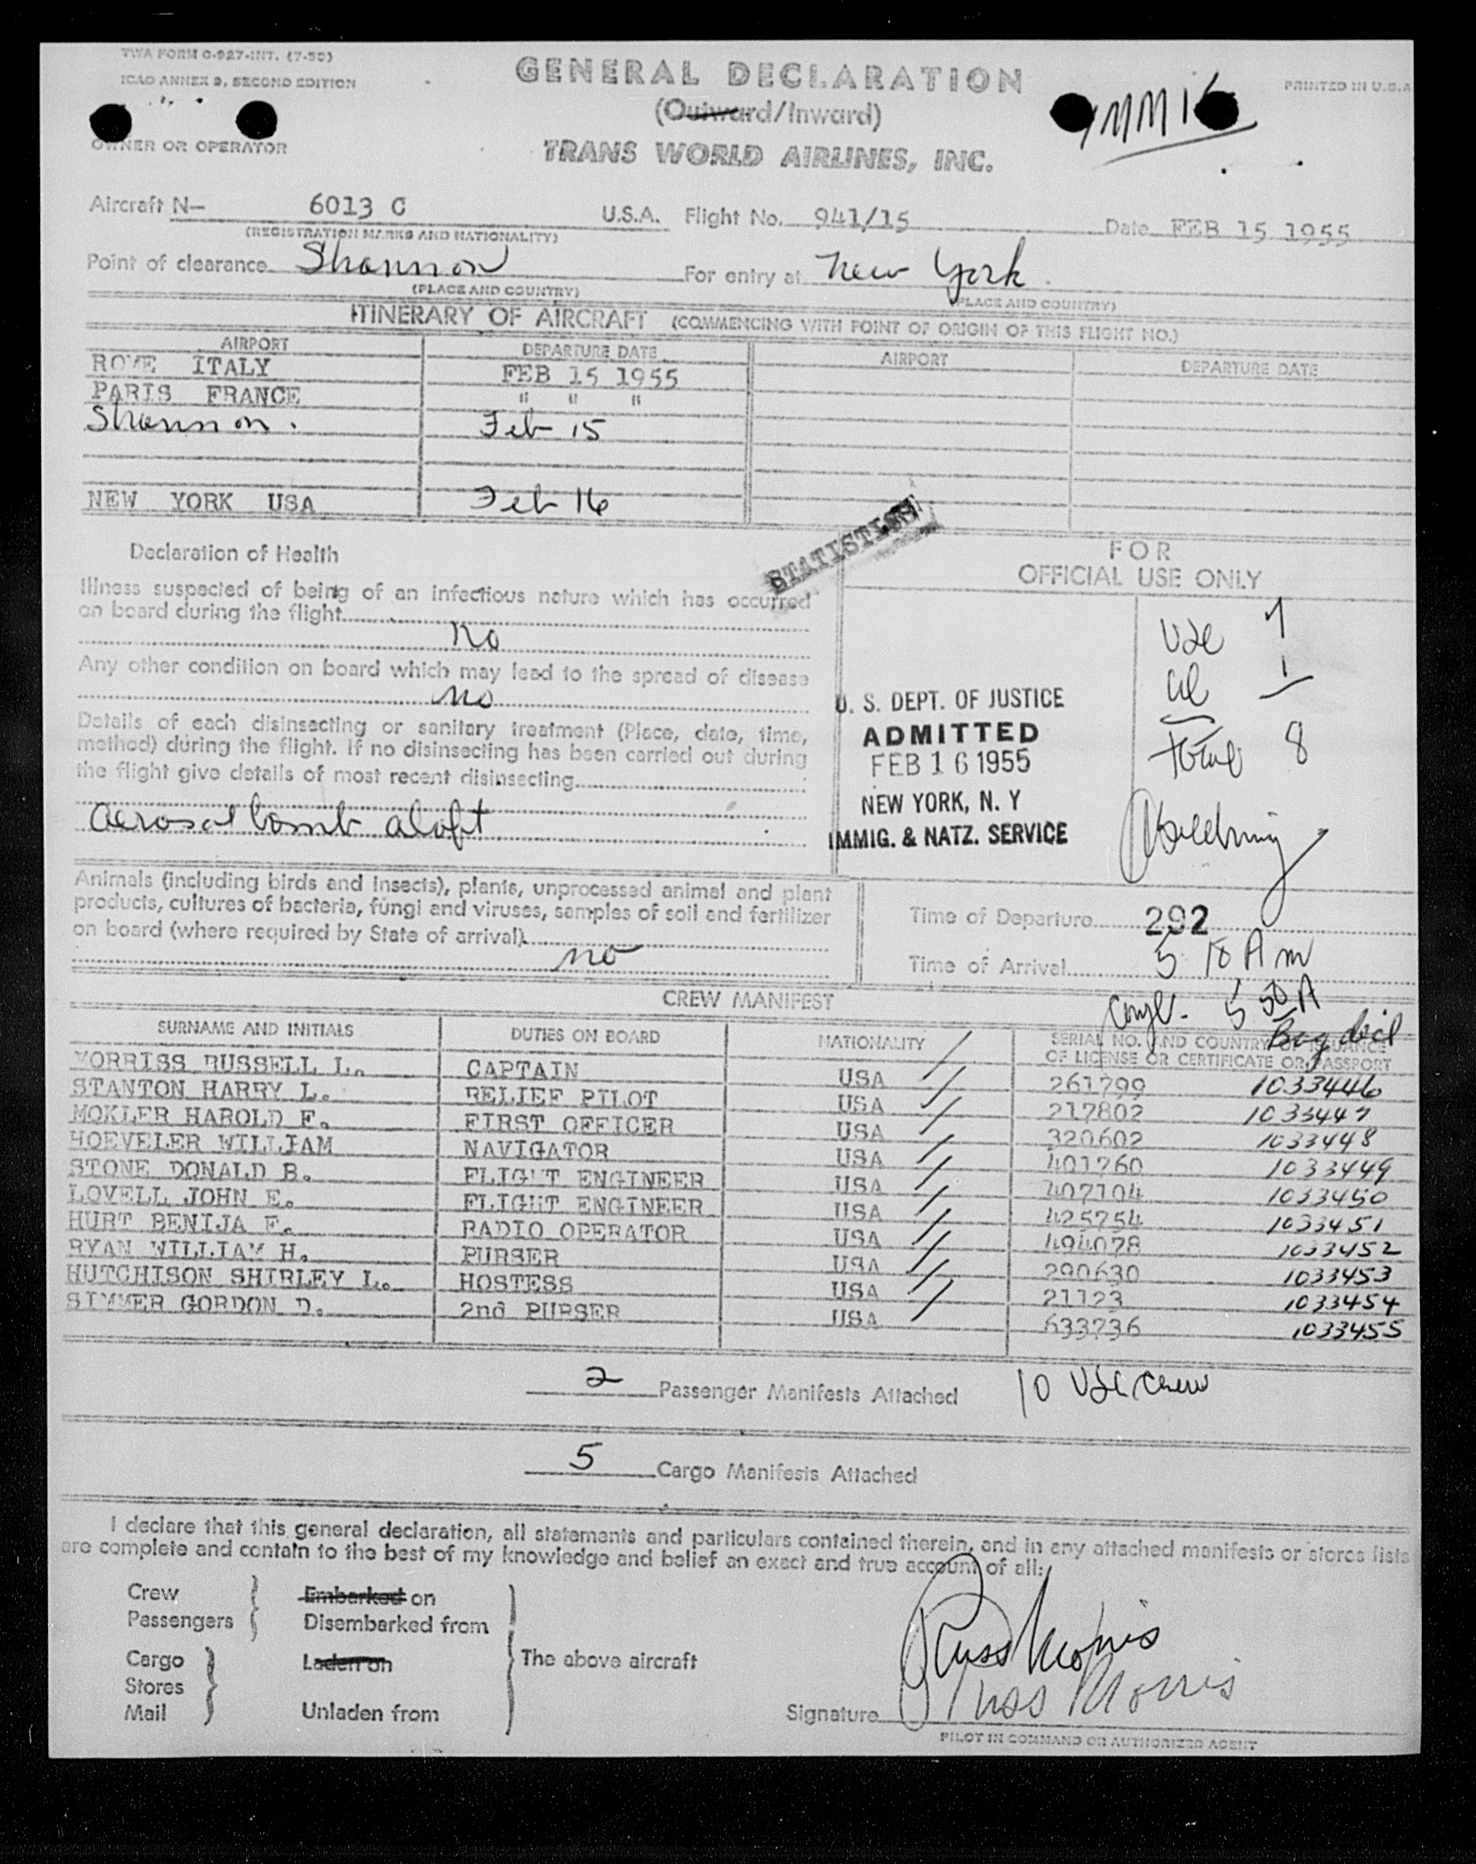 TWA FORM O-927-INT. (7-50)
ICAO ANNEX 9, SECOND EDITION
GENERAL DECLARATION
PRINTED IN U.S.A
(Outward/Inward)
OWNER OR OPERATOR
TRANS WORLD AIRLINES, INC.
Aircraft N— 6013 C U.S.A. Flight No. 941/15 Date FEB 15 1955
(REGISTRATION MARKS AND NATIONALITY)
Point of clearance Shannon For entry at New York
(PLACE AND COUNTRY) (PLACE AND COUNTRY)
ITINERARY OF AIRCRAFT (COMMENCING WITH POINT OF ORIGIN OF THIS FLIGHT NO.)
AIRPORT DEPARTURE DATE AIRPORT DEPARTURE DATE
ROME ITALY FEB 15 1955
PARIS FRANCE " " "
Shannon. Feb 15
NEW YORK USA Feb 16
STATISTICS
Declaration of Health
FOR
OFFICIAL USE ONLY
Illness suspected of being of an infectious nature which has occurred
on board during the flight
no
Any other condition on board which may lead to the spread of disease
no
Details of each disinsecting or sanitary treatment (Place, date, time,
method) during the flight. If no disinsecting has been carried out during
the flight give details of most recent disinsecting
aerosol bomb aloft
USC 7
1
Total 8
U. S. DEPT. OF JUSTICE
ADMITTED
FEB 16 1955
NEW YORK, N. Y
IMMIG. & NATZ. SERVICE
Animals (including birds and insects), plants, unprocessed animal and plant
products, cultures of bacteria, fungi and viruses, samples of soil and fertilizer
on board (where required by State of arrival)
no
Time of Departure 292
Time of Arrival 5 10 AM
5 50 A
CREW MANIFEST
SURNAME AND INITIALS DUTIES ON BOARD NATIONALITY SERIAL NO. AND COUNTRY OF ISSUANCE
OF LICENSE OR CERTIFICATE OR PASSPORT
MORRISS RUSSELL L. CAPTAIN USA 261799 1033446
STANTON HARRY L. RELIEF PILOT USA 217802 1033447
MOKLER HAROLD F. FIRST OFFICER USA 320602 1033448
HOEVELER WILLIAM NAVIGATOR USA 401760 1033449
STONE DONALD B. FLIGHT ENGINEER USA 407104 1033450
LOVELL JOHN E. FLIGHT ENGINEER USA 425754 1033451
HURT BENIJA F. RADIO OPERATOR USA 494078 1033452
RYAN WILLIAM H. PURSER USA 290630 1033453
HUTCHISON SHIRLEY L. HOSTESS USA 21123 1033454
SIMMER GORDON D. 2nd PURSER USA 633736 1033455
2 Passenger Manifests Attached 10 USC crew
5 Cargo Manifests Attached
I declare that this general declaration, all statements and particulars contained therein, and in any attached manifests or stores lists
are complete and contain to the best of my knowledge and belief an exact and true account of all:
Crew Embarked on
Passengers Disembarked from
Cargo Laden on The above aircraft
Stores
Mail Unladen from
Russ Morris
Signature Russ Morris
PILOT IN COMMAND OR AUTHORIZED AGENT